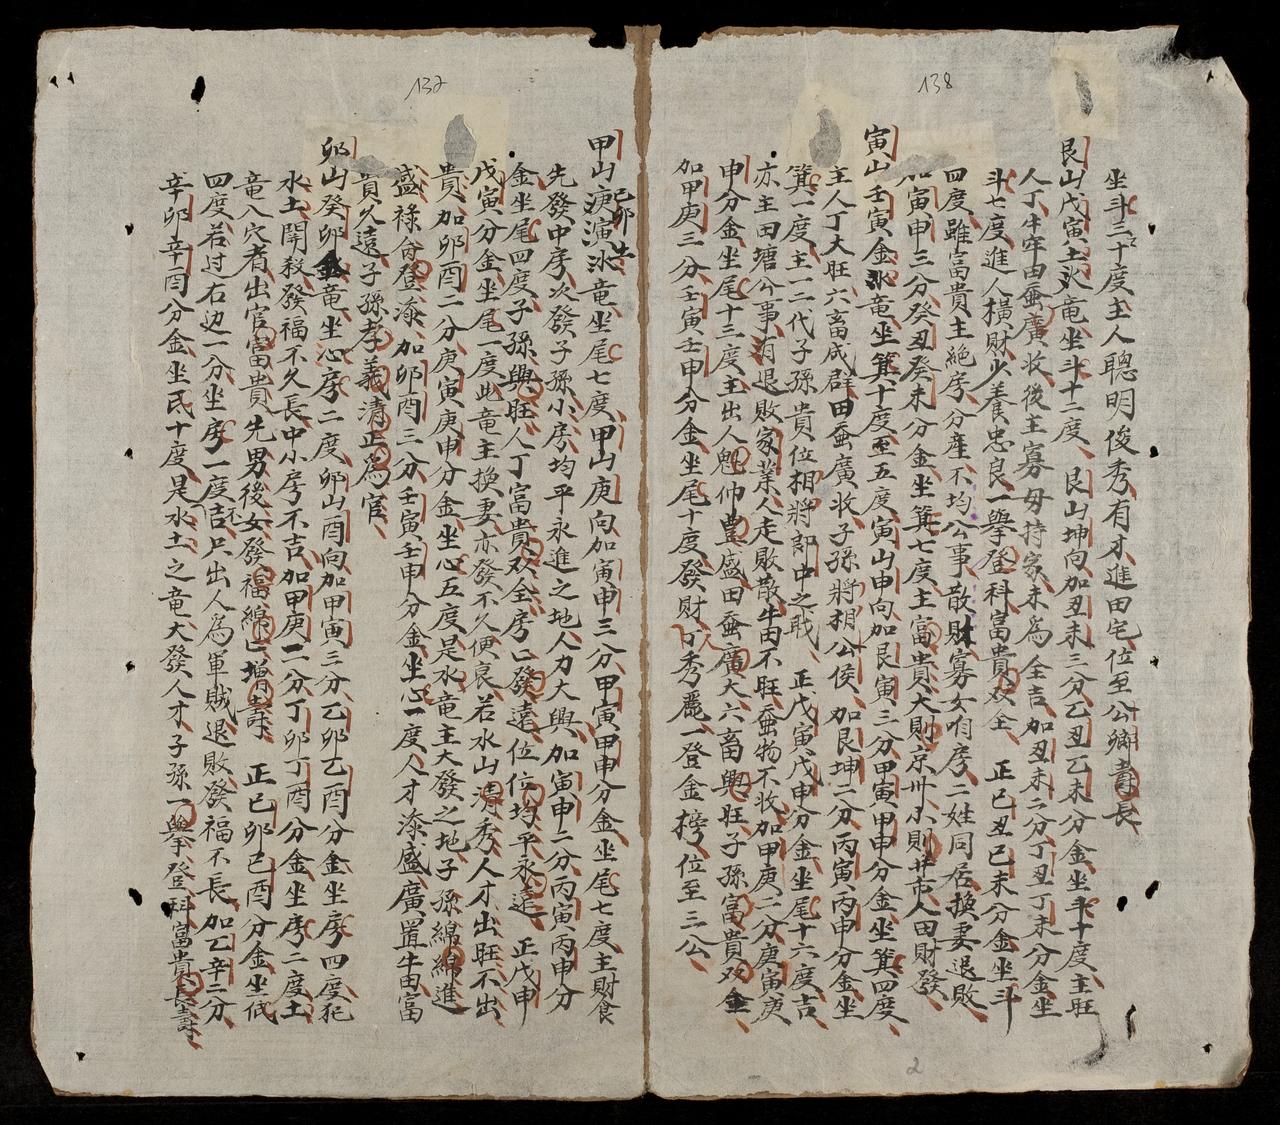 138
坐斗二十度主人聰明俊秀有才進田宅位至公卿壽長
艮山戊寅土氷竜坐斗十二度艮山坤向加丑未三分乙丑乙未分金坐斗十度主旺
人丁牛牢田蚕廣收後主寡母持家未為全吉加丑未二分丁丑丁未分金坐
斗七度進人橫財少養忠良一舉登科富貴双全正己丑己未分金坐斗
四度雖富貴主絶房分產不均公事散財寡女有房二姓同居換妻退敗
加寅申三分癸丑癸未分金坐箕七度主富貴大則京州小則井市人田財發
寅山壬寅金氷竜坐箕十度至五度寅山申向加艮寅三分甲寅甲申分金坐箕四度
主人丁大旺六畜成群田蚕廣收子孫將相公侯加艮坤二分丙寅丙申分金坐
箕一度主一二代子孫貴位相將郎中之戝正戊寅戊申分金坐尾十六度吉
亦主田塘公事有退敗家業人走敗散牛田不旺蚕物不收加甲庚二分庚寅庚
申分金坐尾十三度主出人魁仲豊盛田蚕廣大六畜興旺子孫富貴双全
加甲庚三分壬寅壬申分金坐尾十度發財秀麗一登金榜位至三公
2
137
甲山庚寅氷竜坐尾七度甲山庚向加寅申三分甲寅甲申分金坐尾七度主財食
己卯土
先發中房次發子孫小房均平永進之地人力大興加寅申二分丙寅丙申分
金坐尾四度子孫興旺人丁富貴双全房〻發達位位均平永遠正戊申
戊寅分金坐尾一度此竜主換妻亦發不久便衰若水山清秀人才出旺不出
貴加卯酉二分庚寅庚申分金坐心五度是水竜主大發之地子孫綿綿進
盛祿俞登漆加卯酉三分壬寅壬申分金坐心一度人才漆盛廣置牛田富
貴久遠子孫孝義清正為官
卯山癸卯金竜坐心房二度卯山酉向加甲寅三分乙卯乙酉分金坐房四度犯
水土開殺發福不久長中小房不吉加甲庚二分丁卯丁酉分金坐房二度土
竜八穴者出官富貴先男後女發福綿〻增壽正己卯己酉分金坐低
四度若过右边一分坐房一度不吉只出人為軍賊退敗發福不長加乙辛二分
辛卯辛酉分金坐氐十度是水土之竜大發人才子孫一舉登科富貴長壽